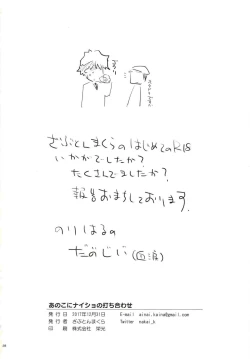 ざぶとんまくらのはじめてのR18
いかがでしたか?
たくさんでましたか?
報告おまちしております。
のりはるの
あのこにナイショの打ち合わせ
発 行 日 2017年12月31日 E-mail ainai.kaina@gmail.com
発 行 者 ざぶとんまくら Twitter nakai_k
印 刷 株式会社 栄光